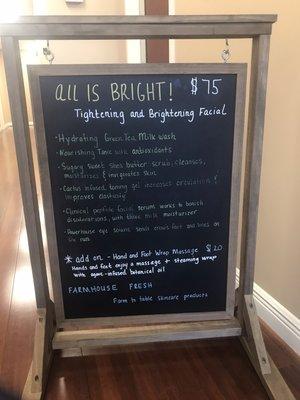 all is BRIGHT! $75
Tightening and Brightening Facial
-Hydrating Green Tea Milk wash
-Nourishing Tonic with antioxidants
-Sugary sweet shea butter scrub, cleanses,
moisturizes & invigorates skin
-Cactus infused toning gel increases circulation &
improves elasticity
-Clinical peptide facial serum works to banish
discolorations, with blue milk moisturizer
-Powerhouse eye serum sends crows feet and lines on
add on - Hand and Foot Wrap Massage $20
Hands and feet enjoy a massage + steaming wrap
with infused botanical oil
FARMHOUSE FRESH
Farm to table skincare products